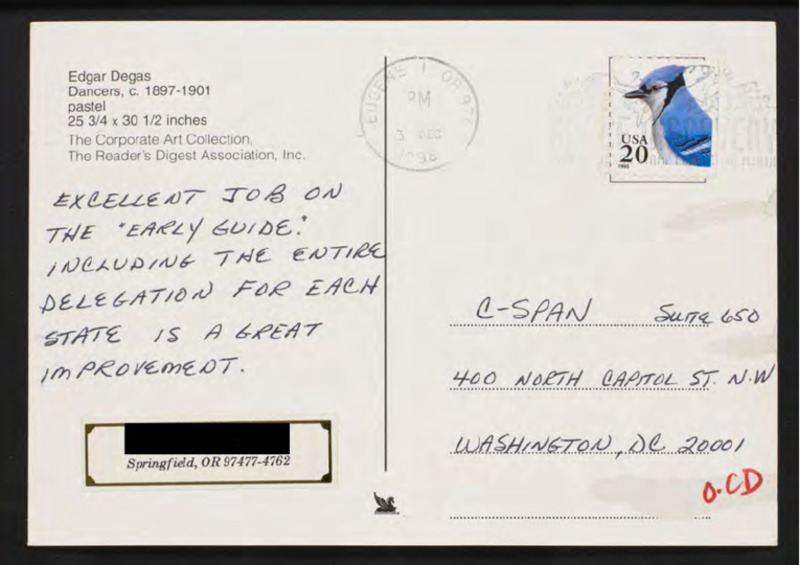 Edgar Degas
Dancers, c. 1897-1901
pastel
25 3/4 x 30 1/2 inches
The Corporate Art Collection,
The Reader's Digest Association, Inc.
EXCELLENT JOB ON
THE "EARLY GUIDE."
INCLUDING THE ENTIRE
DELEGATION FOR EACH
STATE IS A GREAT
IMPROVEMENT.
Springfield, OR 97477-4762
EUGENE OR 97
PM
3 DEC
1996
USA
20
C-SPAN SUITE 650
400 NORTH CAPITOL ST. N.W
WASHINGTON, DC 20001
O.CD